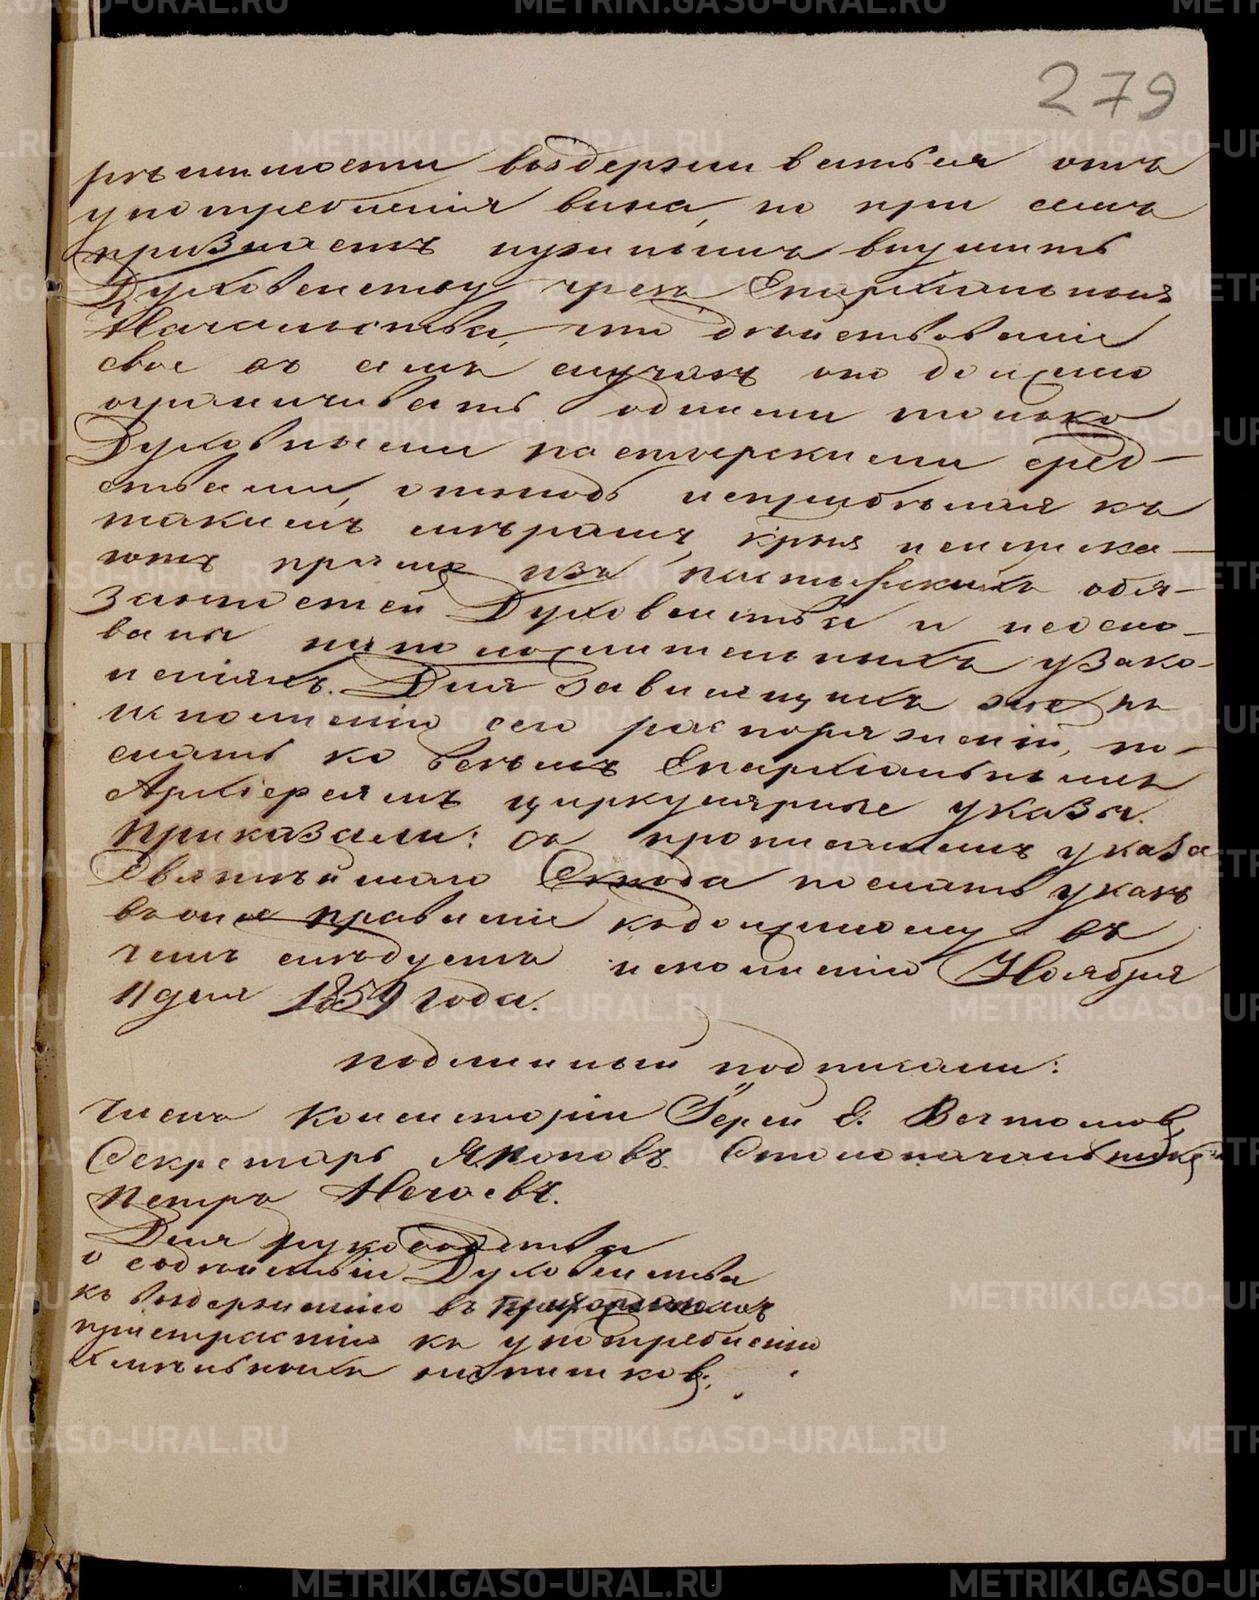 279
рѣшимости воздерживаться отъ
употребленія вина, но при семъ
признаетъ нужнымъ внушить
Духовенству чрезъ Епархіальныя
Начальства, что дѣйствованіе
свое въ семъ случаѣ оно должно
ограничивать одними только
Духовными пастырскими сред-
ствами, отнюдь неприбѣгая къ
такимъ мѣрамъ, кои неистека-
ютъ прямо изъ пастырскихъ обя-
занностей Духовенства и неосно-
ваны на положительныхъ узако-
неніяхъ. Для зависящихъ же къ
исполненію сего распоряженій, по-
слать ко всѣмъ Епархіальнымъ
Архіереямъ циркулярные указы.
Приказали: о прописанномъ указѣ
Святѣйшаго Синода послать указъ
въ оное правленіе къ должному въ
чемъ слѣдуетъ исполненію Ноября
11 дня 1859 года.
подлинный подписали:
Членъ Консисторіи Іерей Е.
Секретарь Я. Поповъ. Столоначальникъ
Петръ
Для руководства
о содѣйствіи Духовенства
къ воздержанію въ прихожанахъ
пристрастія къ употребленію
хмѣльныхъ напитковъ.
METRIKI.GASO-URAL.RU